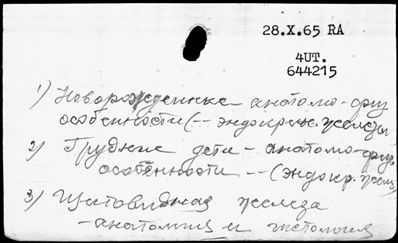 28.X.65 RA
4UT.
644215
1) Новорожденные - анатомо-физ
особенности (-- эндокрин. железы
2) Грудные дети - анатомо-физ.
особенности -- (эндокр. желез
3) Щитовидная железа
- анатомия и гистология